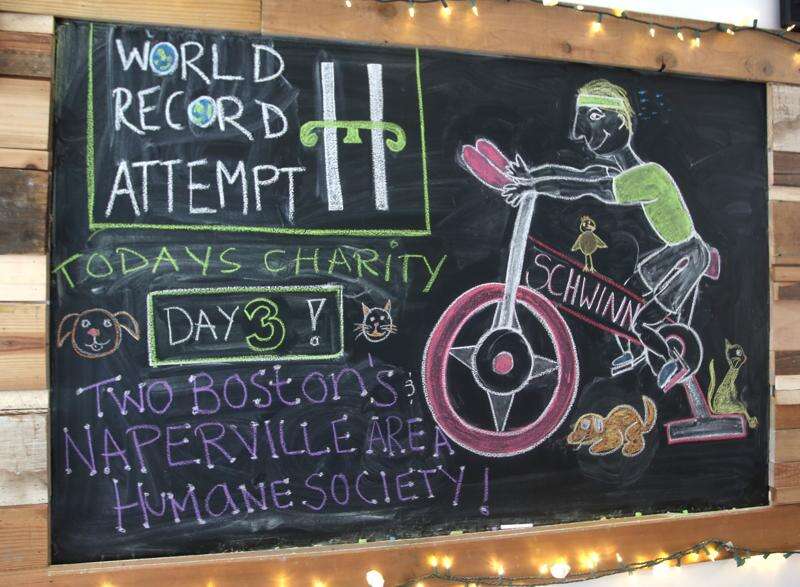 WORLD
RECORD
ATTEMPT
TODAYS CHARITY
DAY 3 !
TWO BOSTON'S
NAPERVILLE AREA
HUMANE SOCIETY!
SCHWINN